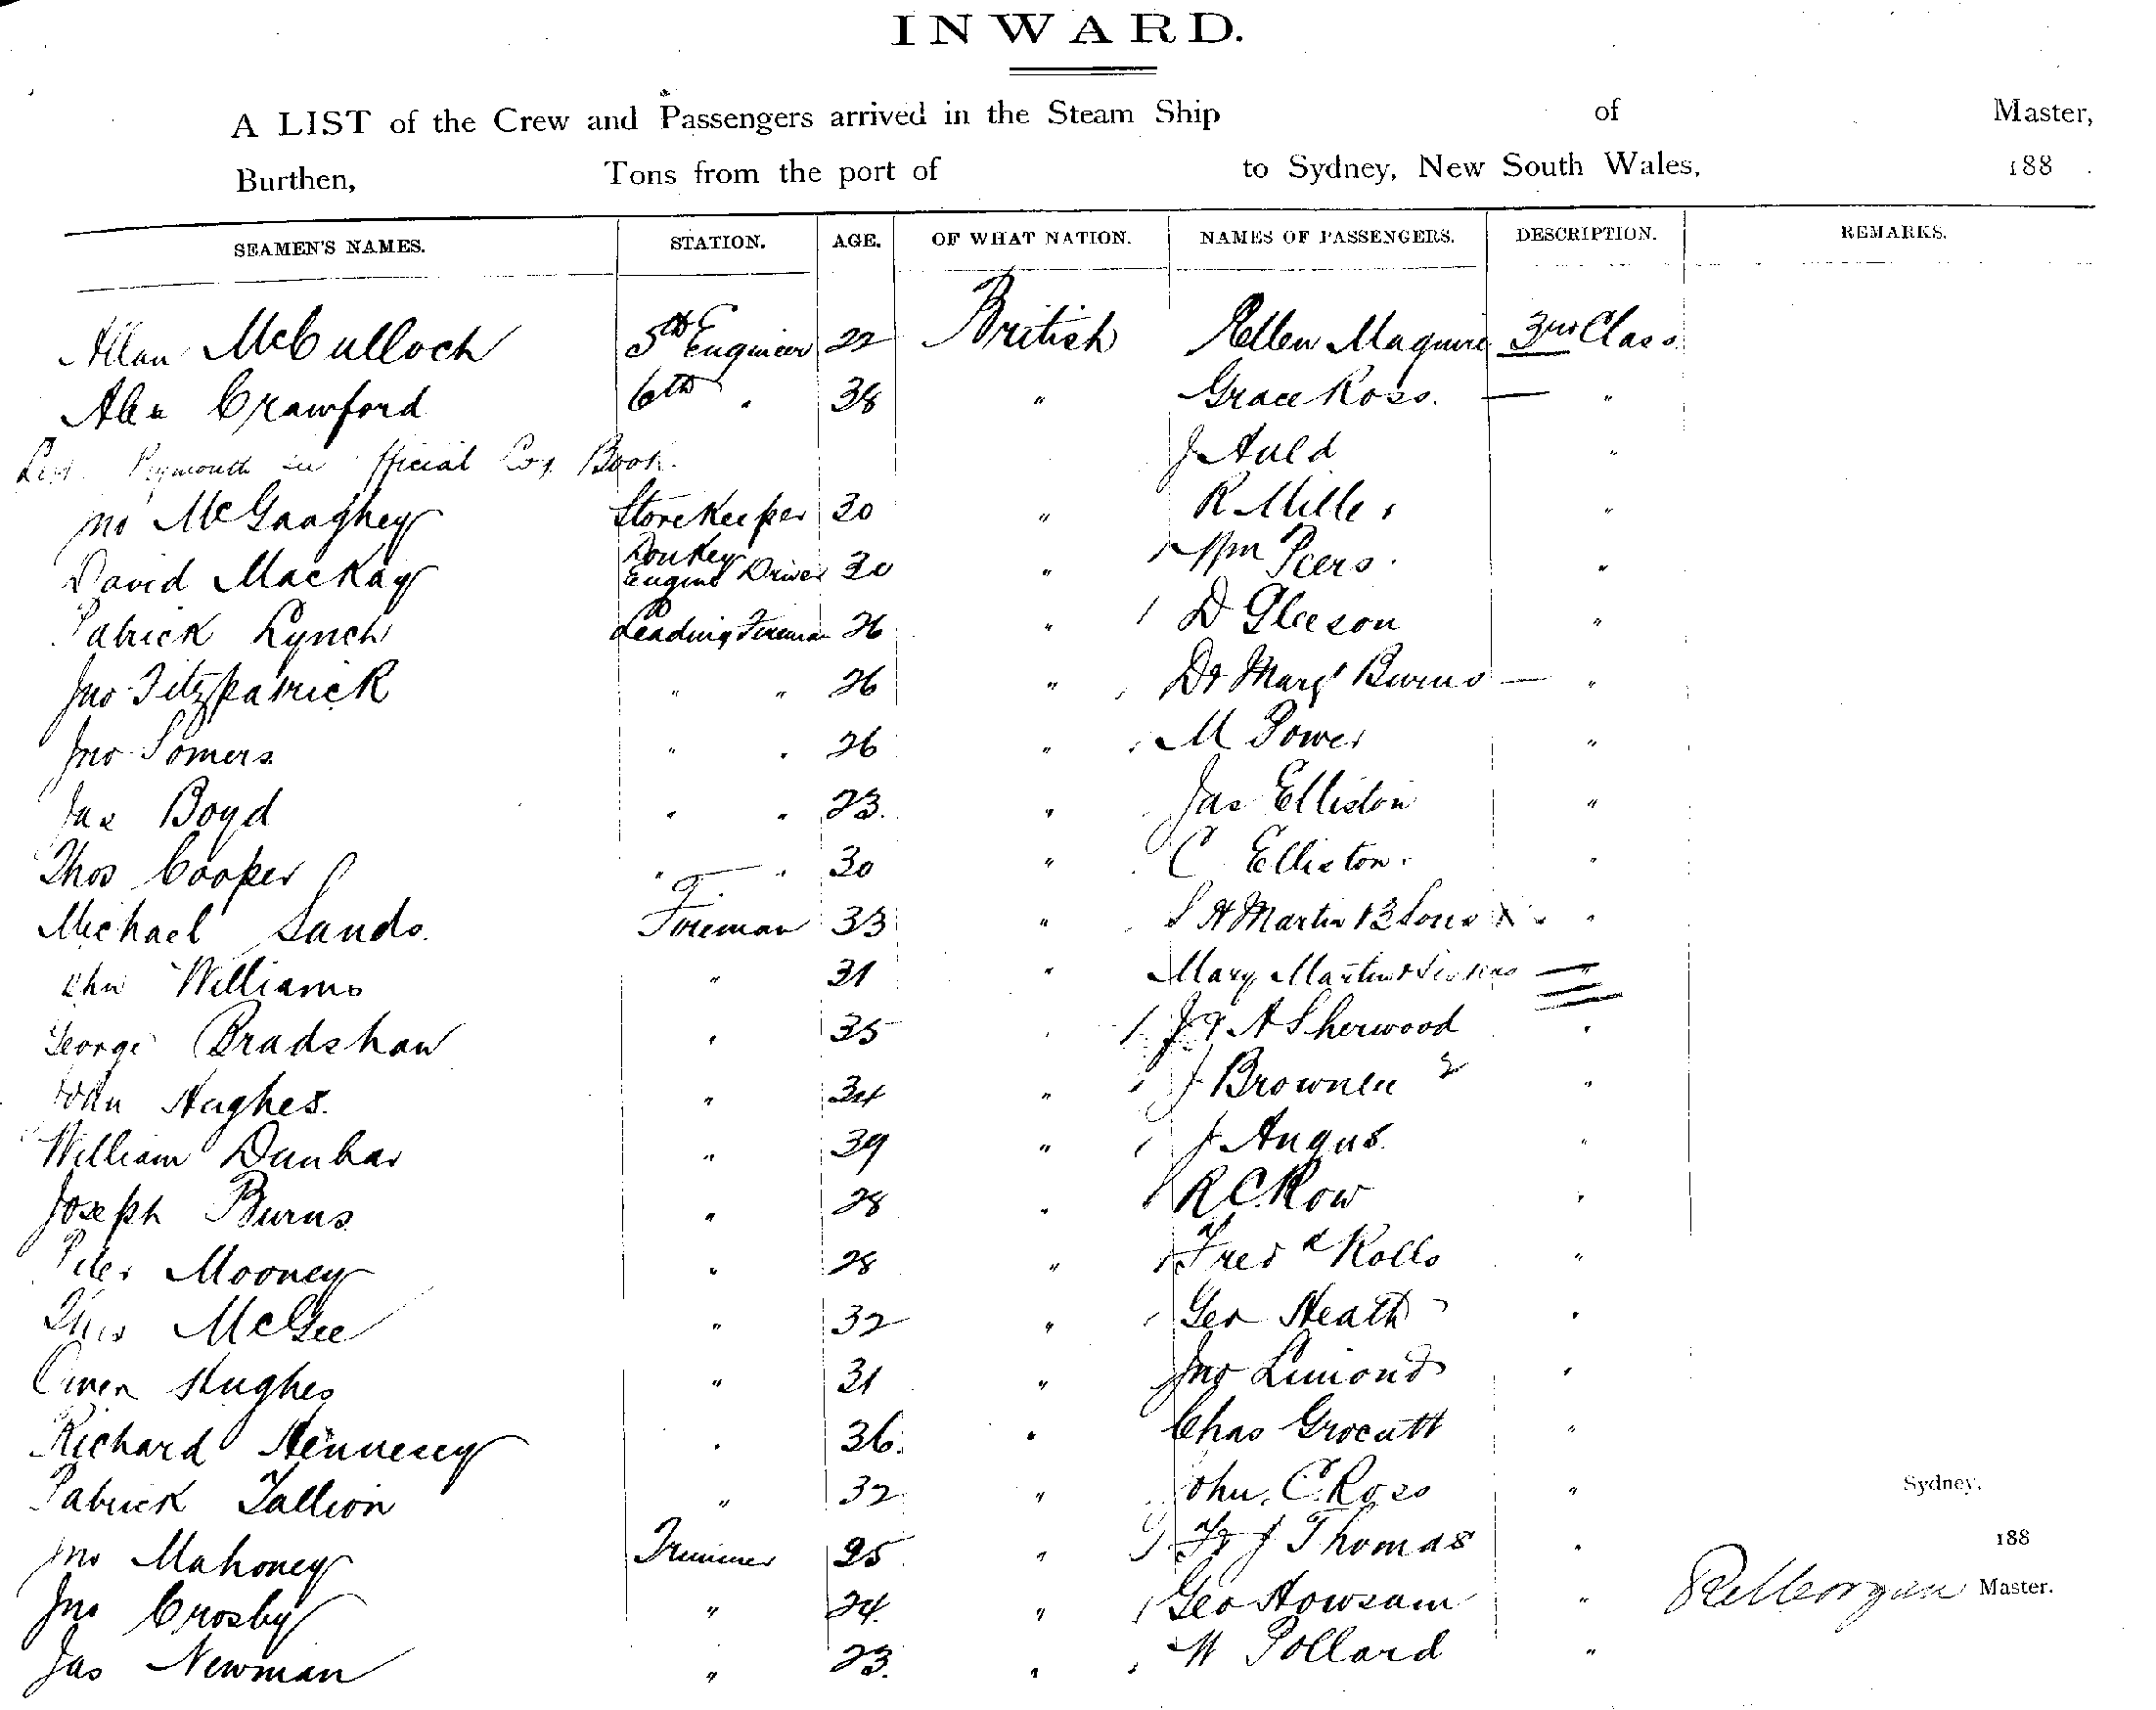 INWARD.
A LIST of the Crew and Passengers arrived in the Steam Ship of Master,
Burthen, Tons from the port of to Sydney, New South Wales, 188 .
SEAMEN'S NAMES. STATION. AGE. OF WHAT NATION. NAMES OF PASSENGERS. DESCRIPTION. REMARKS.
Allan McCulloch 5th Engineer 22 British Ellen Maguire 3rd Class
Alex Crawford 6th " 38 " Grace Ross. — "
Plymouth Official Log Book. J Auld "
Jno McGaaghey Storekeeper 30 " R Miller "
David Mackay Donkey Engine Driver 30 " Wm Peers. "
Patrick Lynch Leading Fireman 26 " D Gleeson "
Jno Fitzpatrick " " 26 " Burns — "
Jno Somers " " 26 " M Power "
Jas Boyd " " 23. " Jas Elliston "
Thos Cooper " " 30 " C Elliston. "
Michael Sands. Fireman 33 " S H Martin & 3 Sons "
John Williams " 31 " Mary Martin "
George Bradshaw " 35 " J & A Sherwood "
John Hughes. " 34 " J Brownlee "
William Dunbar " 39 " J Angus. "
Joseph Burns " 28 " R C Row "
Peter Mooney " 28 " Fredk Rolls "
Thos McGee " 32 " Geo Heath "
Owen Hughes " 31 " Jno Limond "
Richard Hennesey " 36. " Chas Grocutt "
Patrick Tallion " 32 " John. C. Ross " Sydney,
Jno Mahoney Trimmer 25 " J Thomas " 188
Jno Crosby " 24. " Geo Howsam " Master.
Jas Newman " 23. " W Pollard "